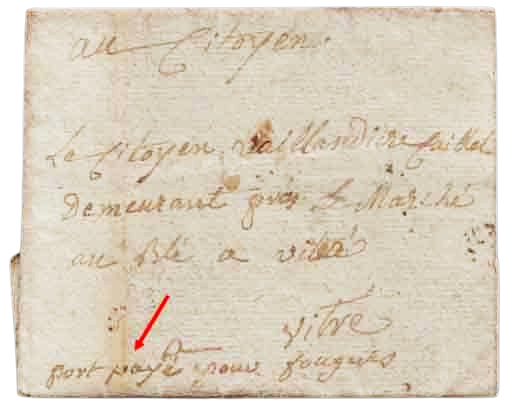 au Citoyen
Le Citoyen vaillandiere caillel
Demeurant pres Le Marché
au Blé a vitré
vitre
port payé pour fougeres